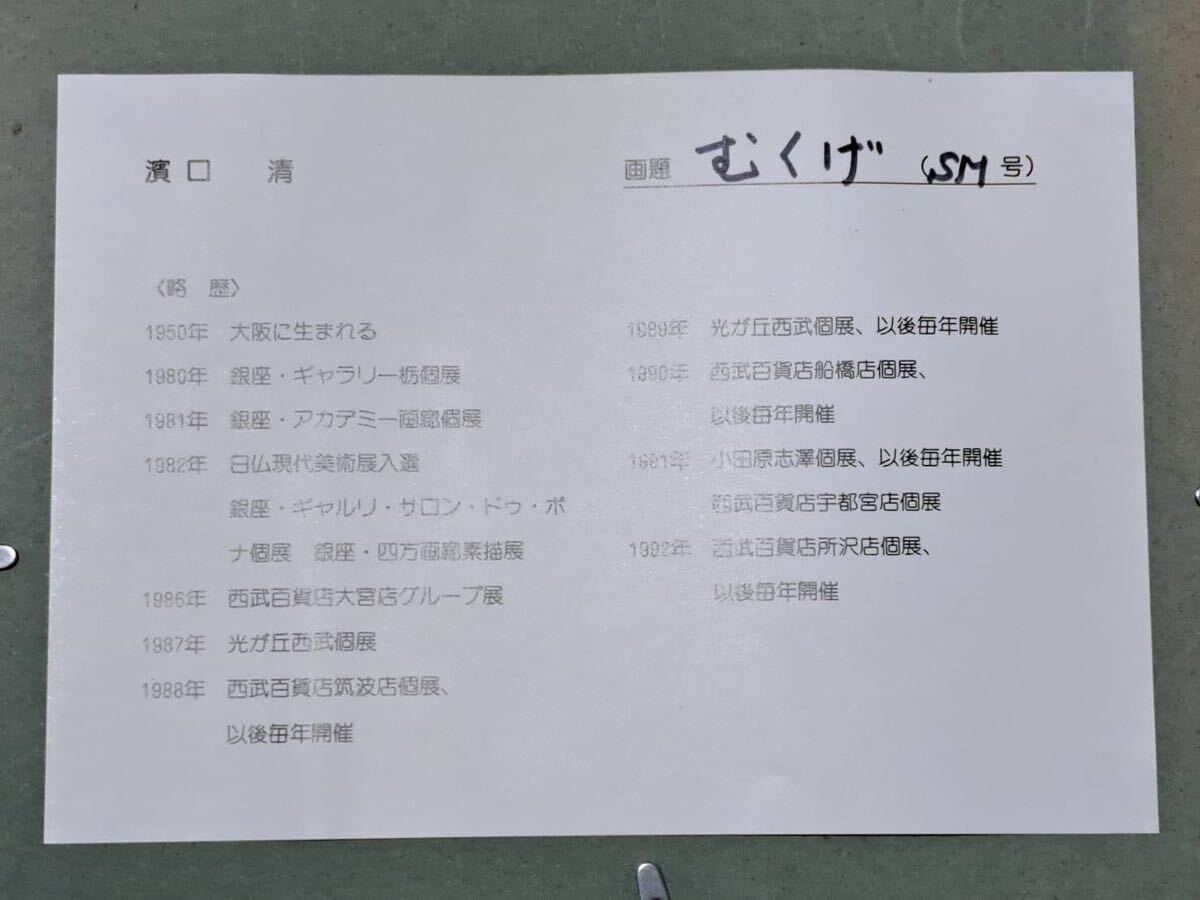 濱口 清
画題 むくげ (SM号)
〈略 歴〉
1950年 大阪に生まれる
1980年 銀座・ギャラリー栃個展
1981年 銀座・アカデミー画廊個展
1982年 日仏現代美術展入選
銀座・ギャルリ・サロン・ドゥ・ボ
ナ個展 銀座・四方画廊素描展
1986年 西武百貨店大宮店グループ展
1987年 光が丘西武個展
1988年 西武百貨店筑波店個展、
以後毎年開催
1989年 光が丘西武個展、以後毎年開催
1990年 西武百貨店船橋店個展、
以後毎年開催
1991年 小田原志澤個展、以後毎年開催
西武百貨店宇都宮店個展
1992年 西武百貨店所沢店個展、
以後毎年開催